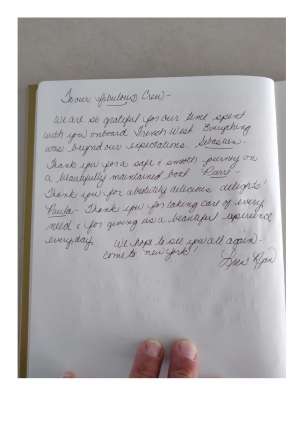 To our fabulous Crew -
We are so grateful for our time spent
with you onboard French West. Everything
was beyond our expectations. Sebastien -
Thank you for a safe & smooth journey on
a beautifully maintained boat.
Thank you for absolutely delicious delights!
Paula - Thank you for taking care of every
need & for giving us a beautiful experience
everyday.
We hope to see you all again -
come to new york!
Ryan